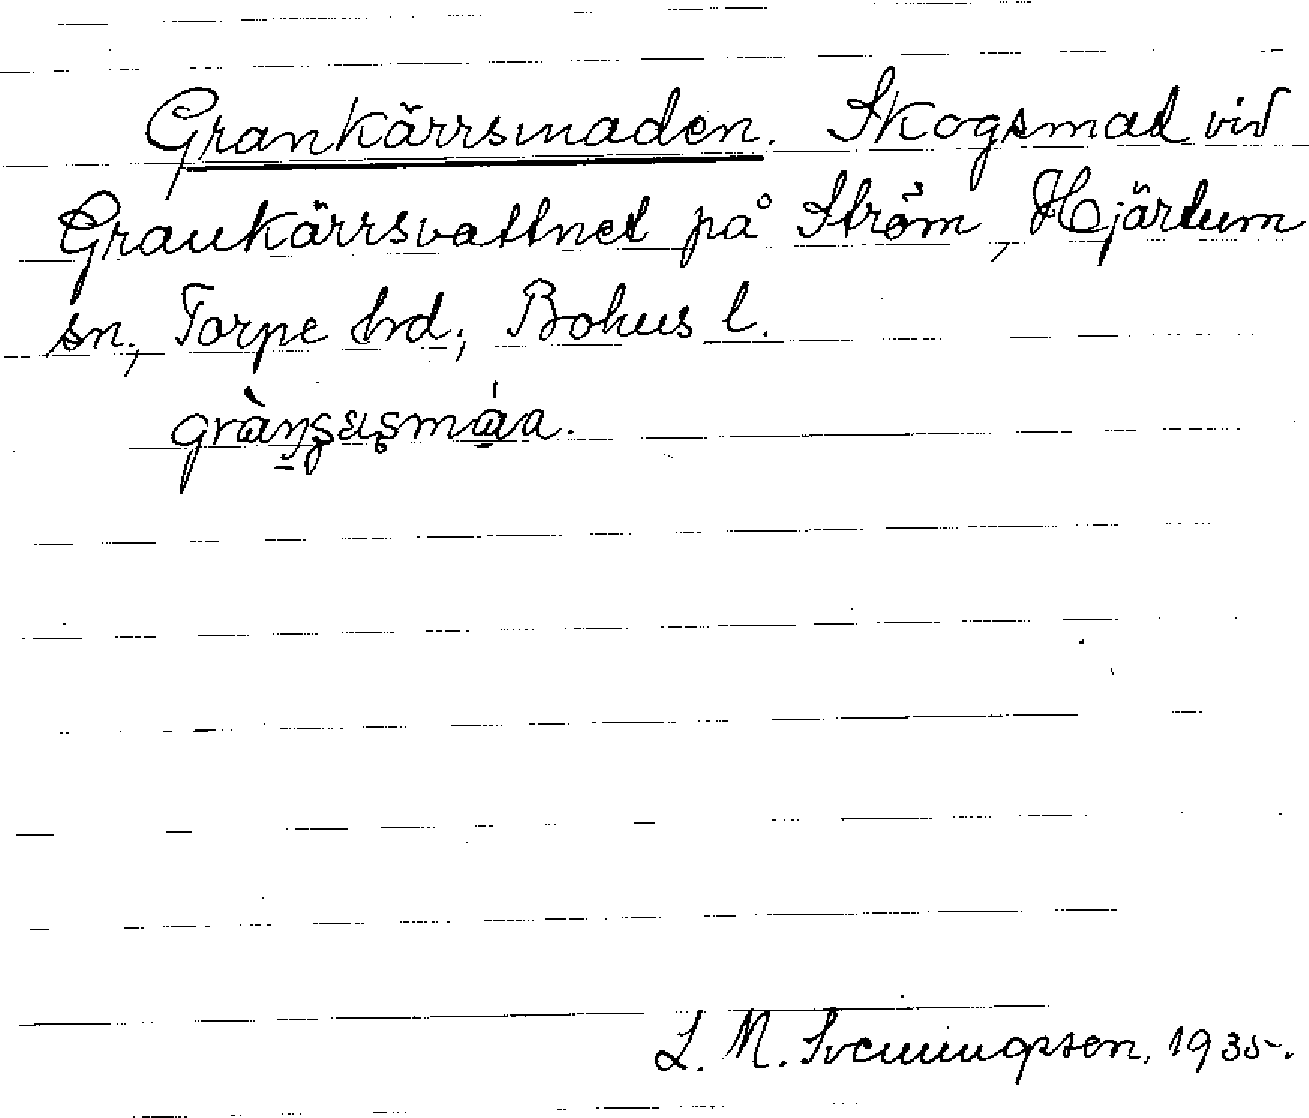 Grankärrsmaden. Skogsmad vid
Grankärrsvattnet på Ström, Hjärtum
sn., Torpe hrd., Bohus l.
L. M. Svenungsson, 1935.